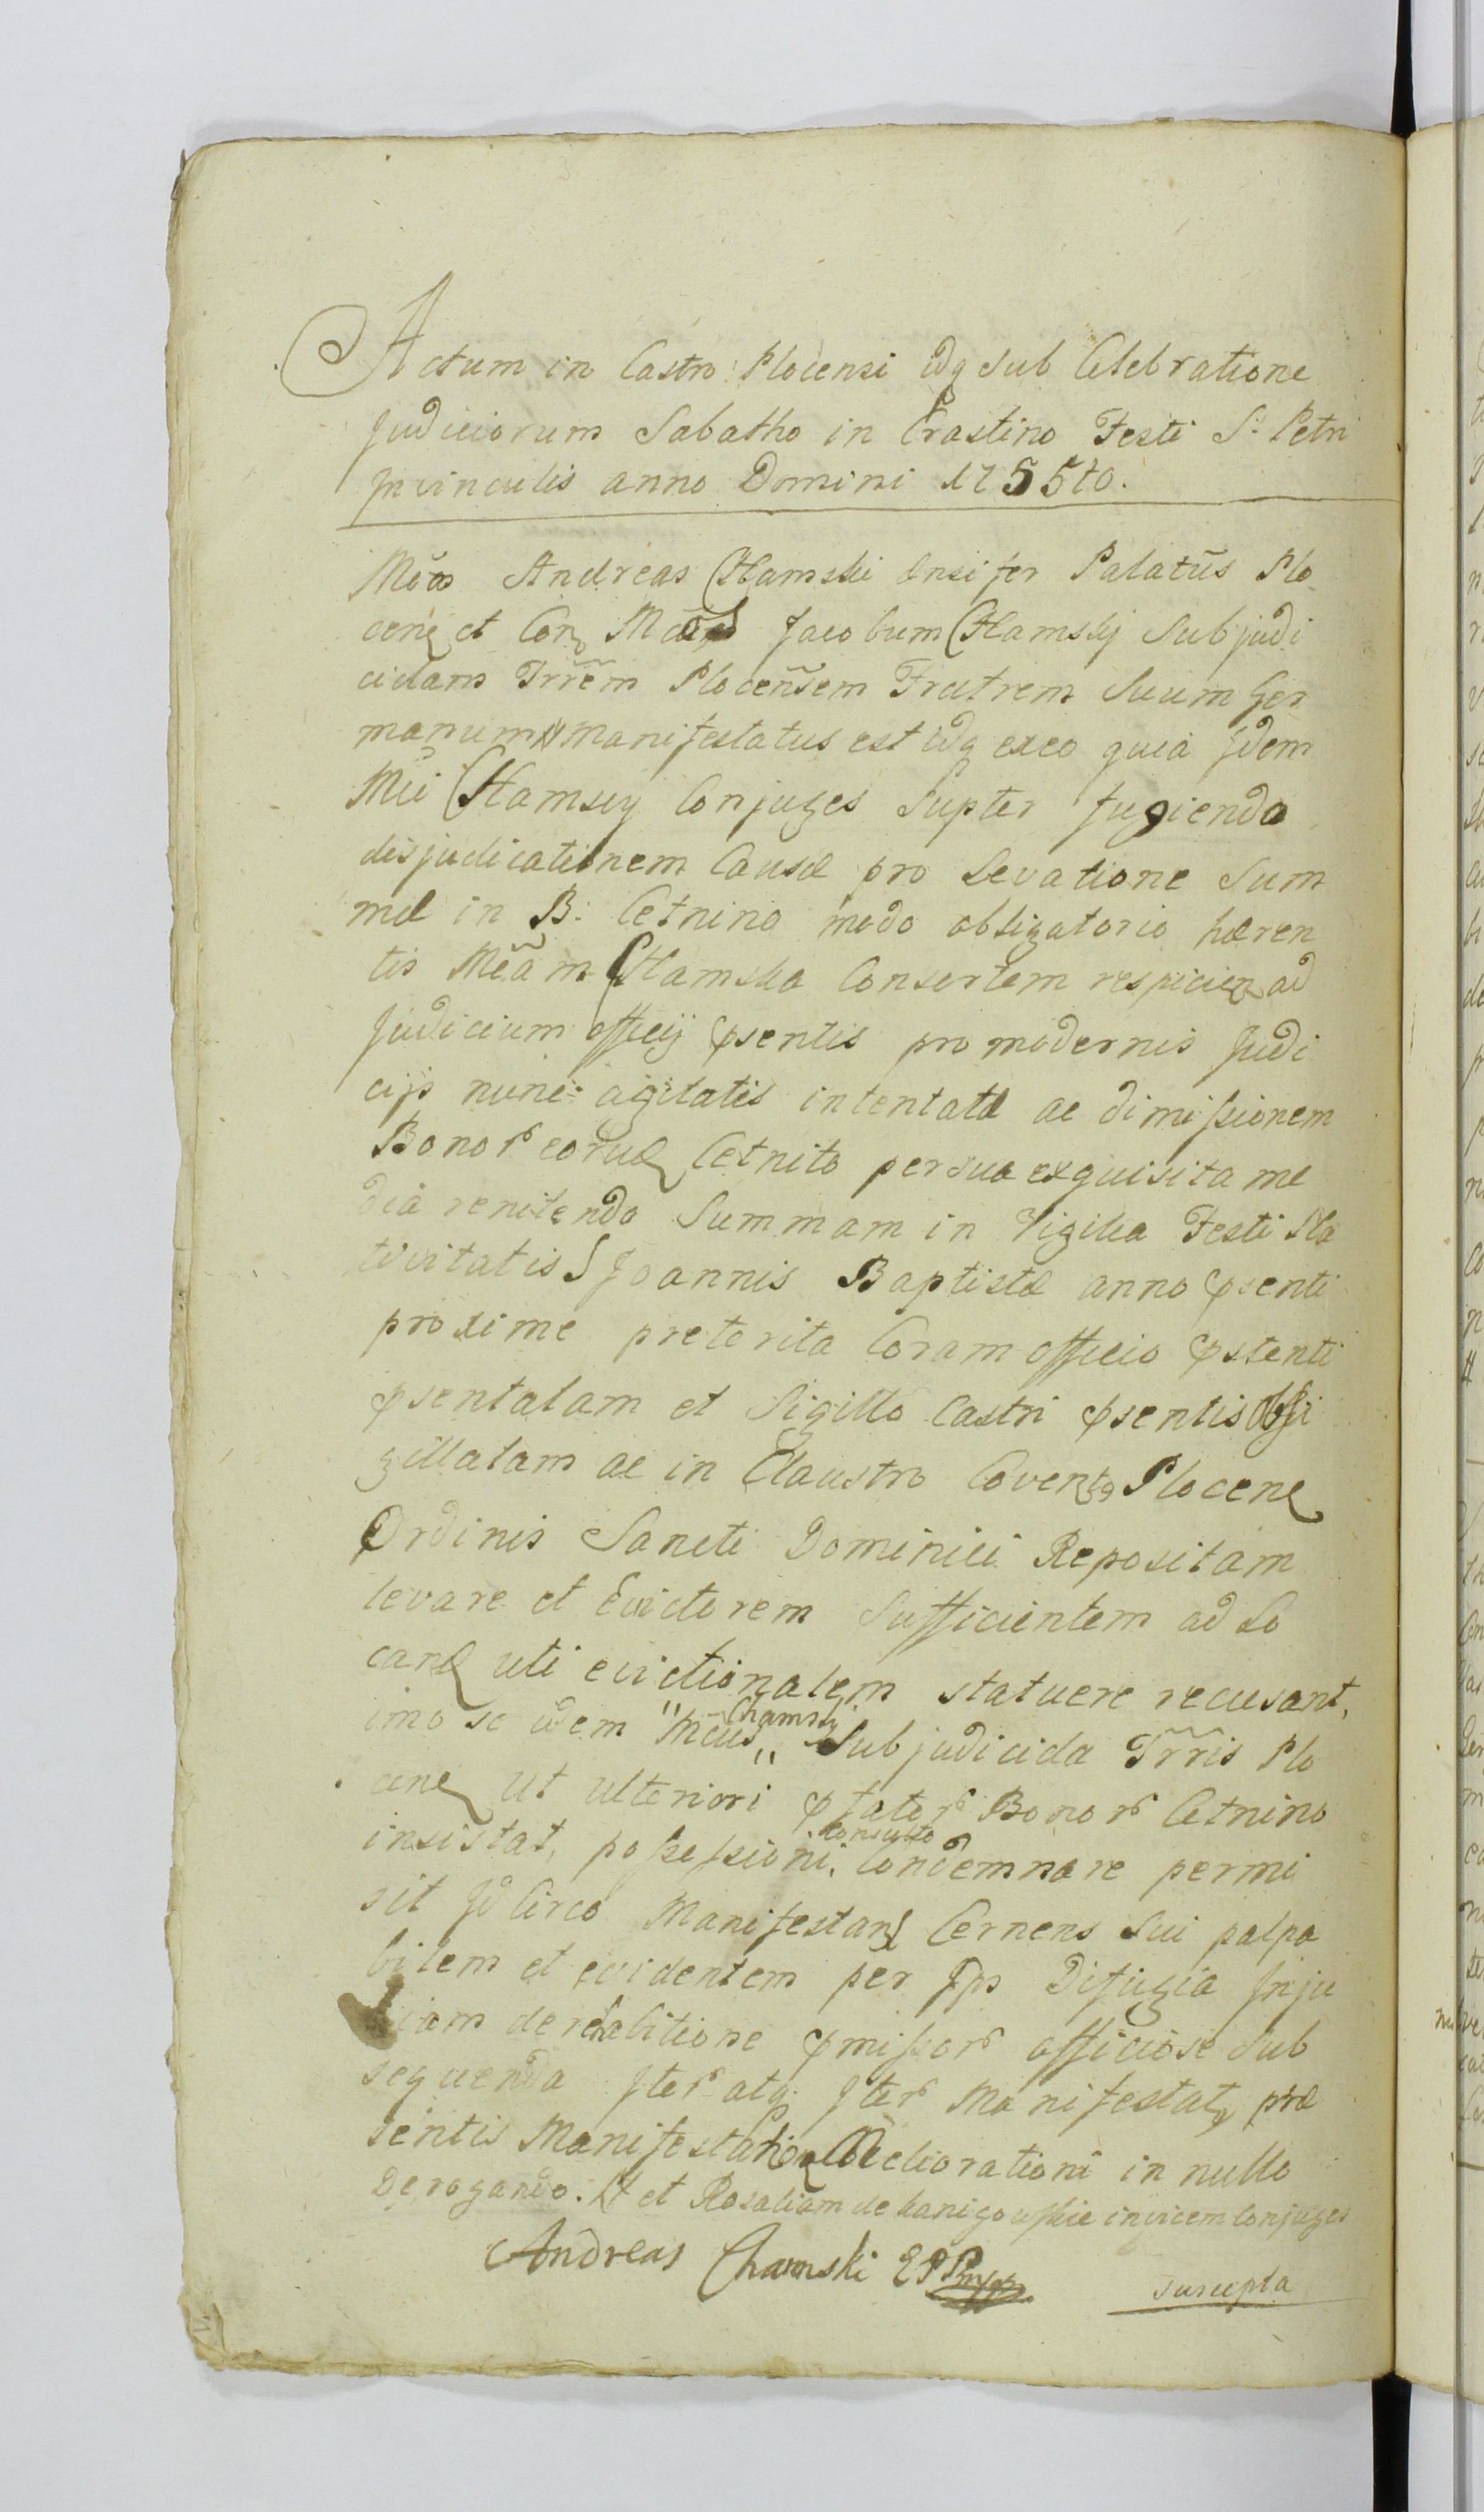 Actum in Castro Plocensi idq sub Celebratione
Judiciorum Sabatho in Crastino Festi S. Petri
Jnvinculis anno Domini 1755to.
Mcus Andreas Chamski Ensifer Palatus Plo
cen et Con Jacobum Chamskj Subjudi
cidam Trrem Plocensem Fratrem Suum Ger
manum # manifestatus est idq exeo quia Jdem
Mci Chamscy Conjuges Supter fugiendo
disjudicationem Causæ pro Levatione Sum
mæ in B: Cetnino modo obligatorio hæren
tis Mcam Chamska Consortem respicien ad
Judicium officij psentis pro modernis Judi
cijs nunc agitatis intentatæ ac dimissionem
Bonor eorun Cetnito per sua exquisita me
dia renitendo Summam in Vigilia Festi Na
tivitatis S Joannis Baptistæ anno psenti
proxime preterita Coram officio pstenti
psentatam et Sigillo Castri psentis Obsi
gillatam ac in Claustro Covent9 Plocen
Ordinis Sancti Dominici Repositam
levare et Evictorem Sufficientem ad Lo
can uti evictionalem statuere recusant,
imo se idem "Mcus" Chamskj Subjudicida Trris Plo
cen Ut ulteriori pfator Bonor Cetnino
insistat, possessioni, consulto Condemnare permi
sit Jd Circo Manifestans Cernens Sui palpa
bilem et evidentem per Jps Difugia Jnju
riam de rehabitione pmissor officiose Sub
sequenda Jter atq Jter Manifestat, præ
sentis Manifestation Meliorationi in nullo
Derogando. # et Rosaliam de invicem Conjuges
Andreas Chamski E P
suscepta